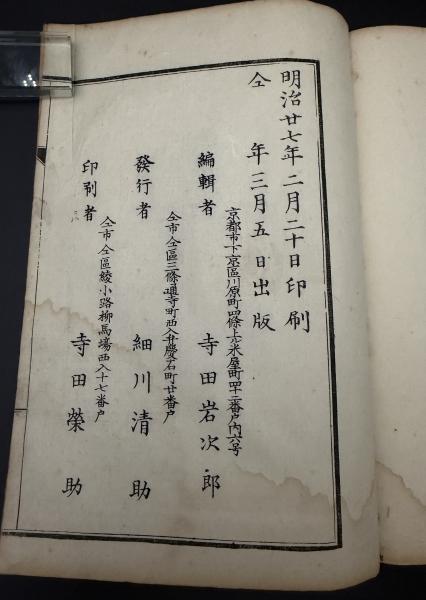 明治廿七年二月二十日印刷
仝年三月五日出版
京都市下京區川原町四條上ル米屋町四十二番戸内六号
編輯者 寺田岩次郎
仝市仝區三條通寺町西入弁慶石町廿番戸
發行者 細川清助
仝市仝區綾小路柳馬場西入十七番戸
印刷者 寺田榮助